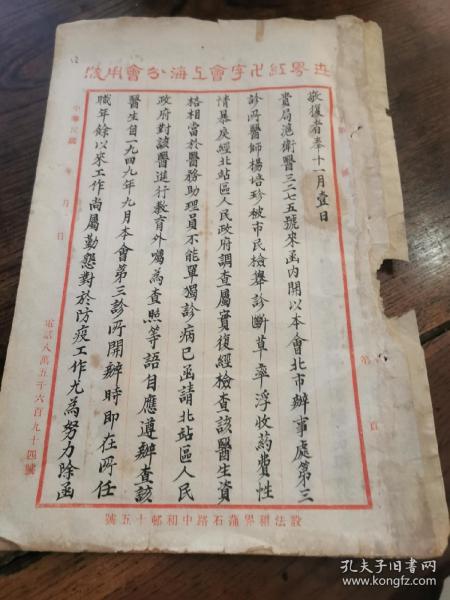 世界紅卍字會上海分會用牋
敬復者奉十一月壹日
貴局滬衛醫三二七五號來函內開以本會北市辦事處第三
診所醫師楊培珍被市民檢舉診斷草率浮收葯費性
情暴戾經北站區人民政府調查屬實復經檢查該醫生資
格相當於醫務助理員不能單獨診病已函請北站區人民
政府對該醫進行教育外囑為查照等語自應遵辦查該
醫生自一九四九年九月本會第三診所開辦時即在所任
職年餘以來工作尚屬勤懇對於防疫工作尤為努力除函
中華民國 年 月 日
第 頁
電話八萬五千六百九十四號
設法租界蒲石路中和邨十五號
孔夫子旧书网
book.kongfz.com